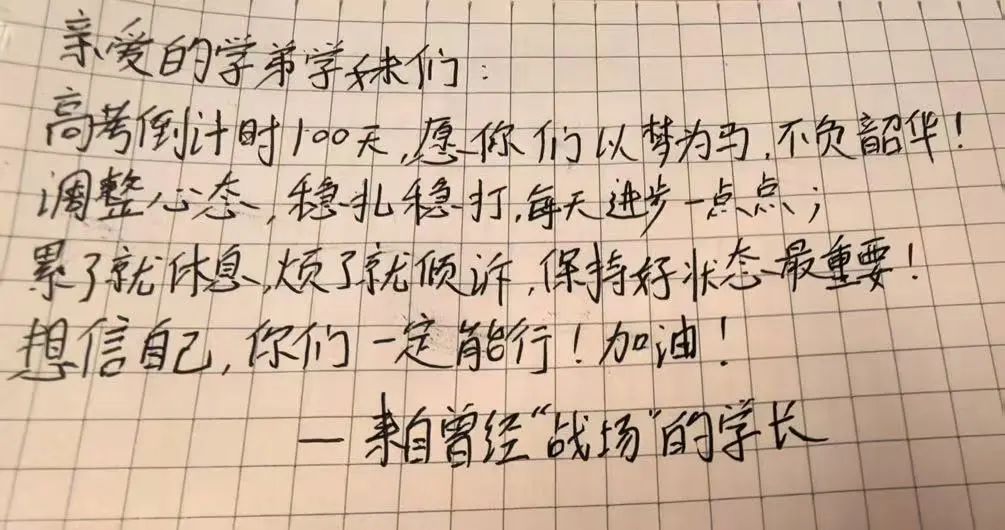 亲爱的学弟学妹们:
高考倒计时100天,愿你们以梦为马,不负韶华!
调整心态,稳扎稳打,每天进步一点点;
累了就休息,烦了就倾诉,保持好状态最重要!
想信自己,你们一定能行!加油!
—来自曾经“战场”的学长